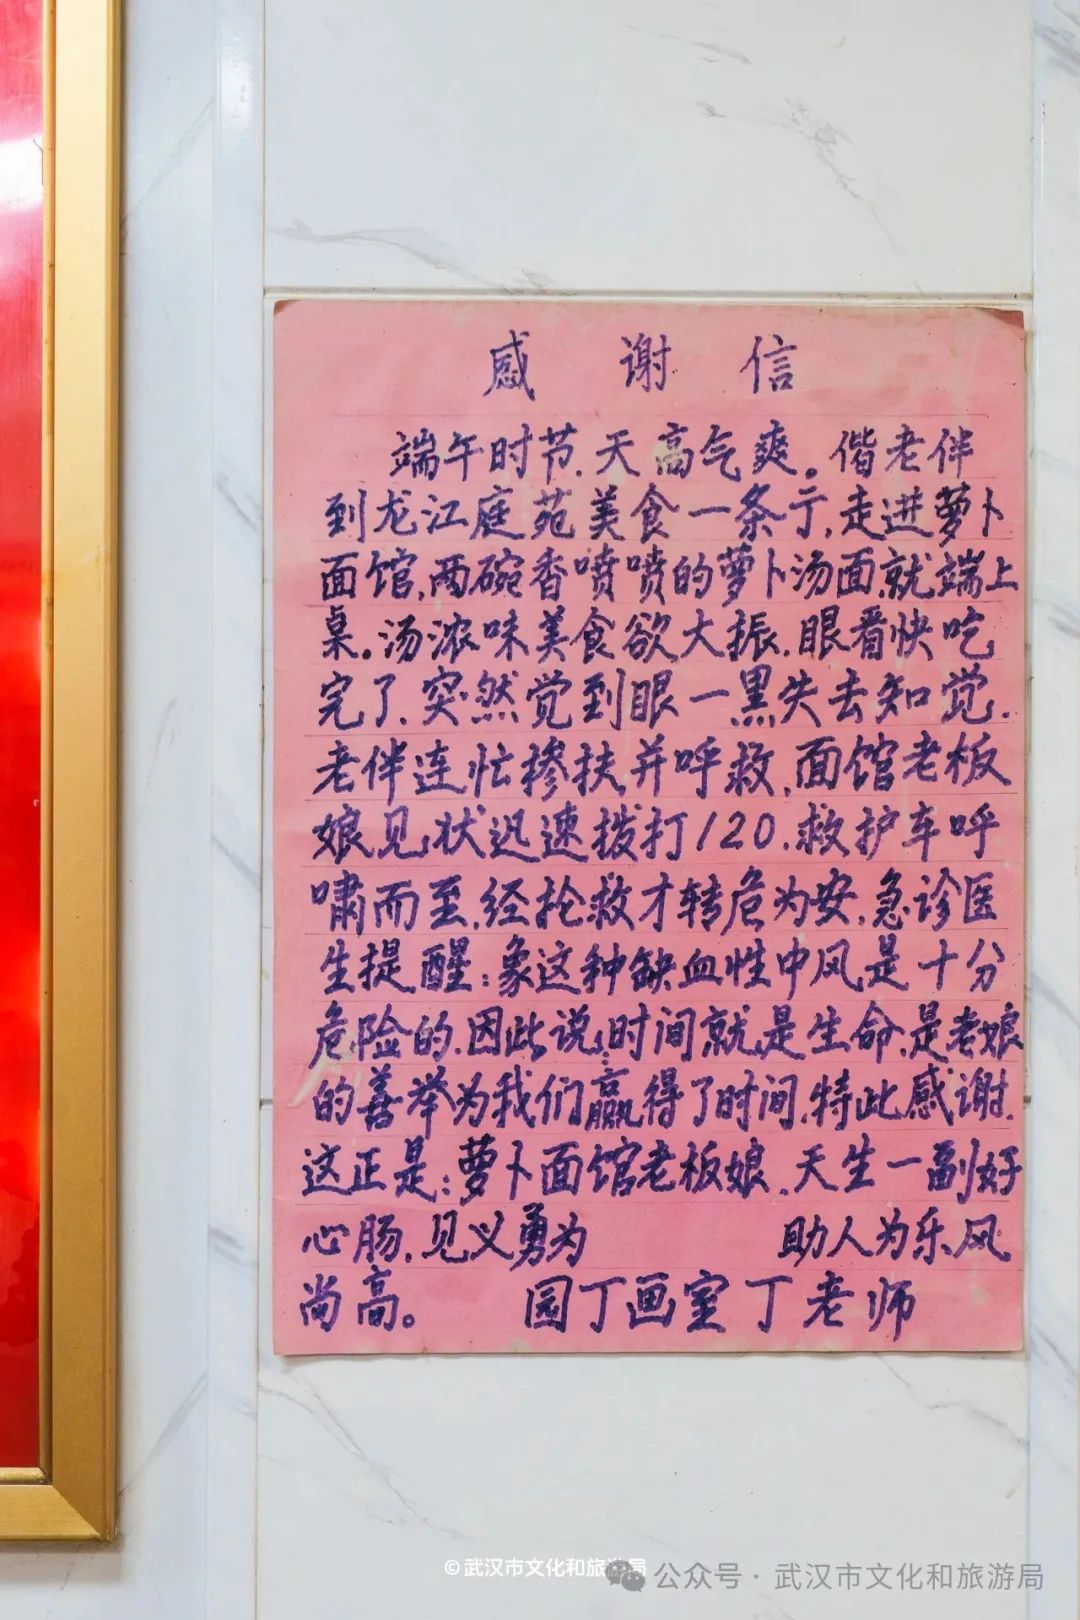 感谢信
端午时节.天高气爽。偕老伴
到龙江庭苑美食一条亍,走进萝卜
面馆,两碗香喷喷的萝卜汤面就端上
桌。汤浓味美食欲大振.眼看快吃
完了.突然觉到眼一黑失去知觉.
老伴连忙掺扶并呼救.面馆老板
娘见状迅速拨打120.救护车呼
啸而至.经抢救才转危为安.急诊医
生提醒:象这种缺血性中风是十分
危险的.因此说:时间就是生命.是老娘
的善举为我们赢得了时间.特此感谢.
这正是:萝卜面馆老板娘.天生一副好
心肠.见义勇为 助人为乐风
尚高。 园丁画室丁老师
©武汉市文化和旅游局
公众号·武汉市文化和旅游局